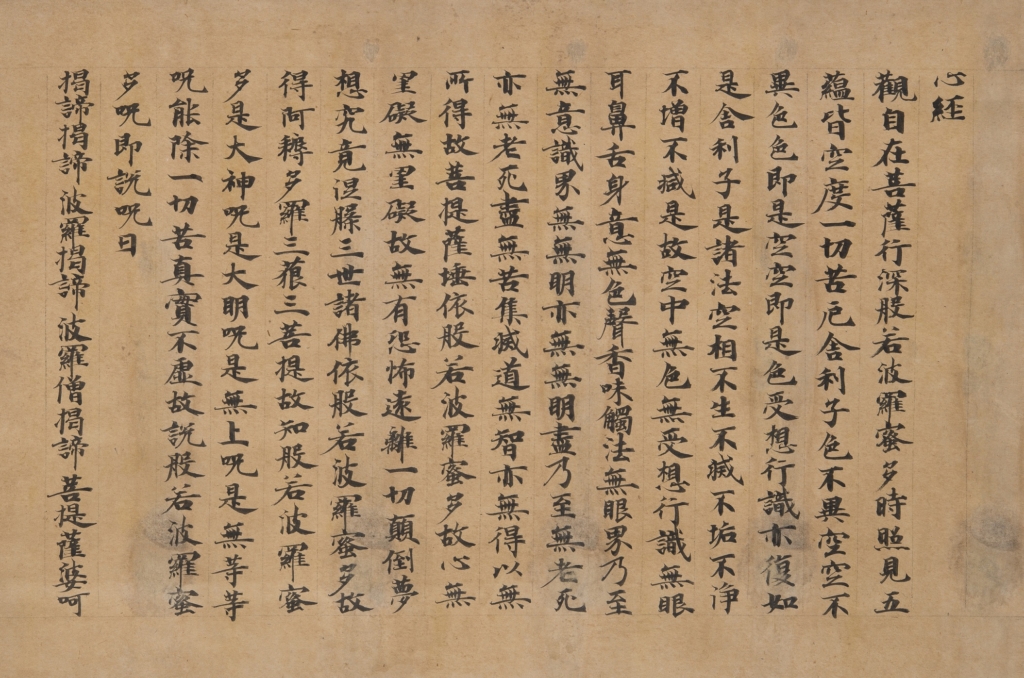 心経
觀自在菩薩行深般若波羅蜜多時照見五
蘊皆空度一切苦厄舍利子色不異空空不
異色色即是空空即是色受想行識亦復如
是舍利子是諸法空相不生不滅不垢不淨
不增不減是故空中無色無受想行識無眼
耳鼻舌身意無色聲香味觸法無眼界乃至
無意識界無無明亦無無明盡乃至無老死
亦無老死盡無苦集滅道無智亦無得以無
所得故菩提薩埵依般若波羅蜜多故心無
罣礙無罣礙故無有恐怖遠離一切顛倒夢
想究竟涅槃三世諸佛依般若波羅蜜多故
得阿耨多羅三藐三菩提故知般若波羅蜜
多是大神呪是大明呪是無上呪是無等等
呪能除一切苦真實不虛故說般若波羅蜜
多呪即說呪曰
揭諦揭諦 波羅揭諦 波羅僧揭諦 菩提薩婆呵